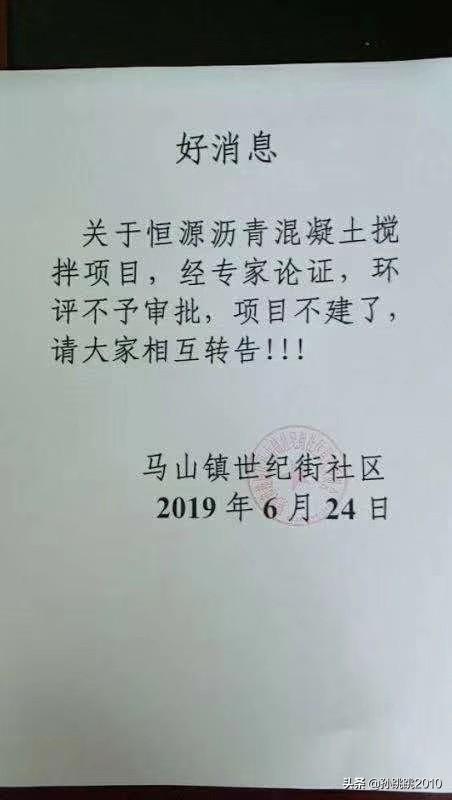 好消息
关于恒源沥青混凝土搅
拌项目，经专家论证，环
评不予审批，项目不建了，
请大家相互转告!!!
马山镇世纪街社区
2019 年 6 月 24 日
头条 @孙跳跳2010